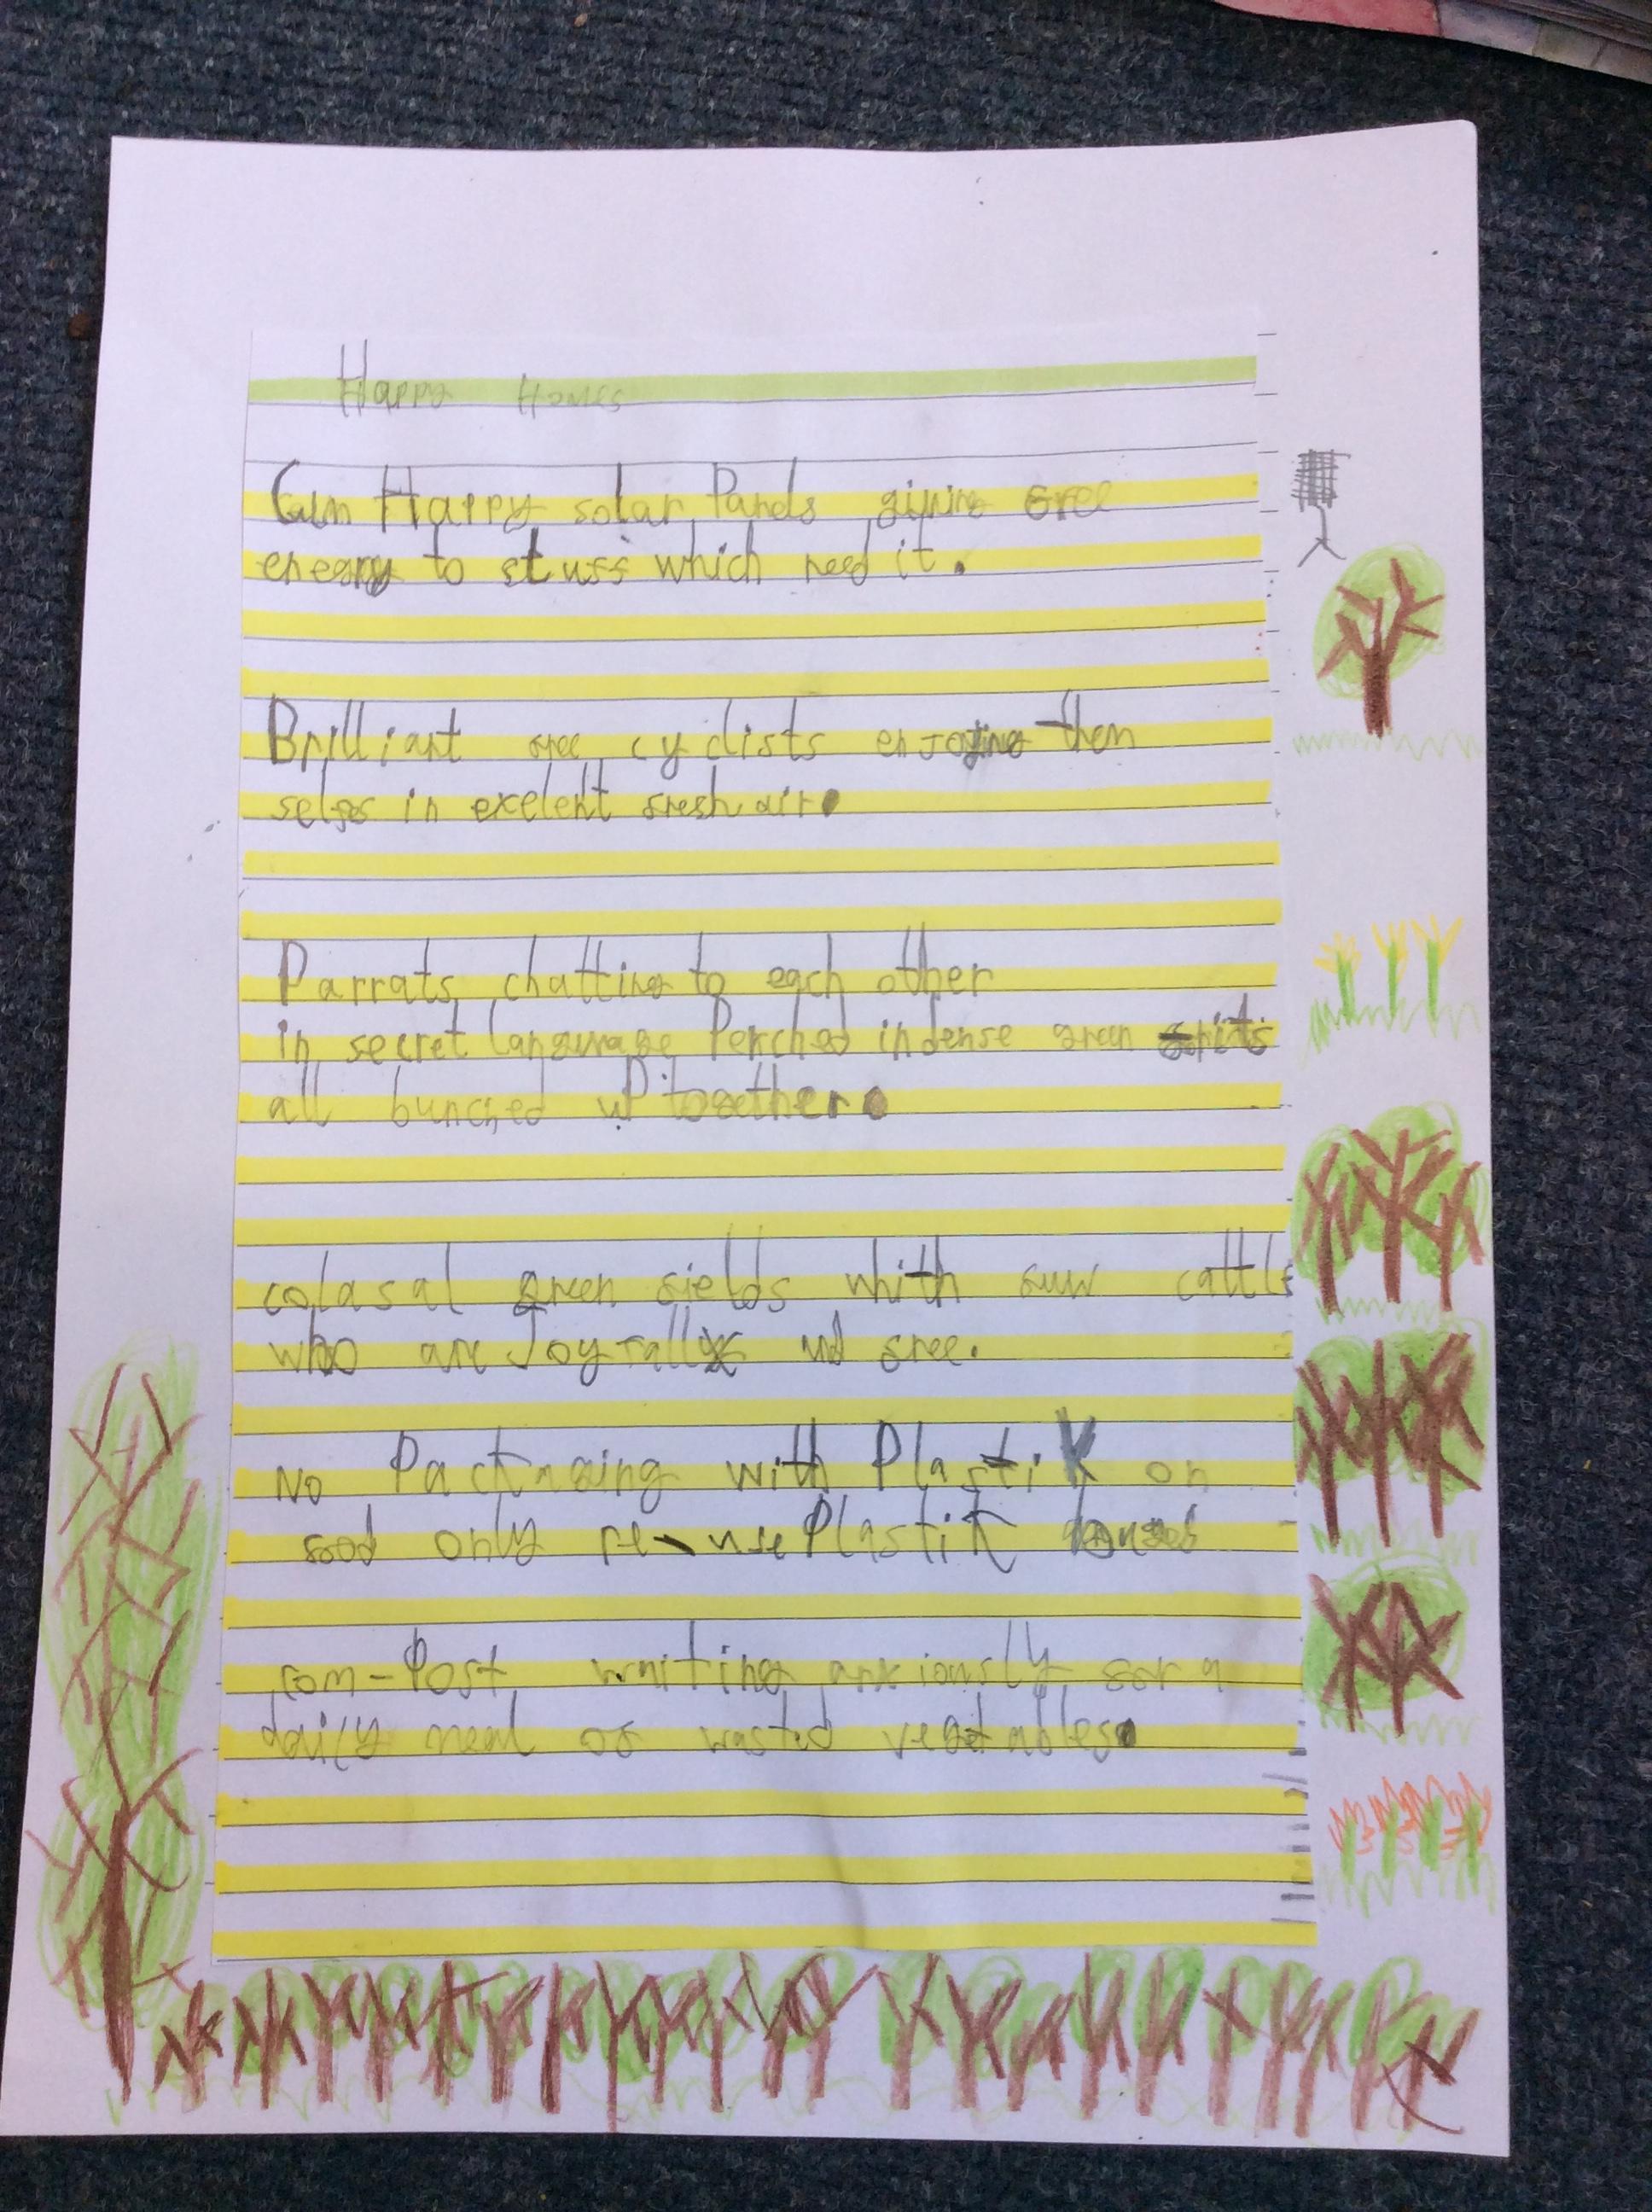 Happy Homes
Calm Happy solar Panels giving free
energy to stuff which need it.
Brilliant free cyclists enjoying them
selfs in exelent fresh air.
Parrats chatting to each other
in secret language Perched in dense green
all bunched up together.
colasal green fields whith few cattle
who are Joyfally and free.
No Packaging with PlastiK on
food only re-use Plastik
com-Post waiting anxiously for a
daily meal of wasted vegetables.